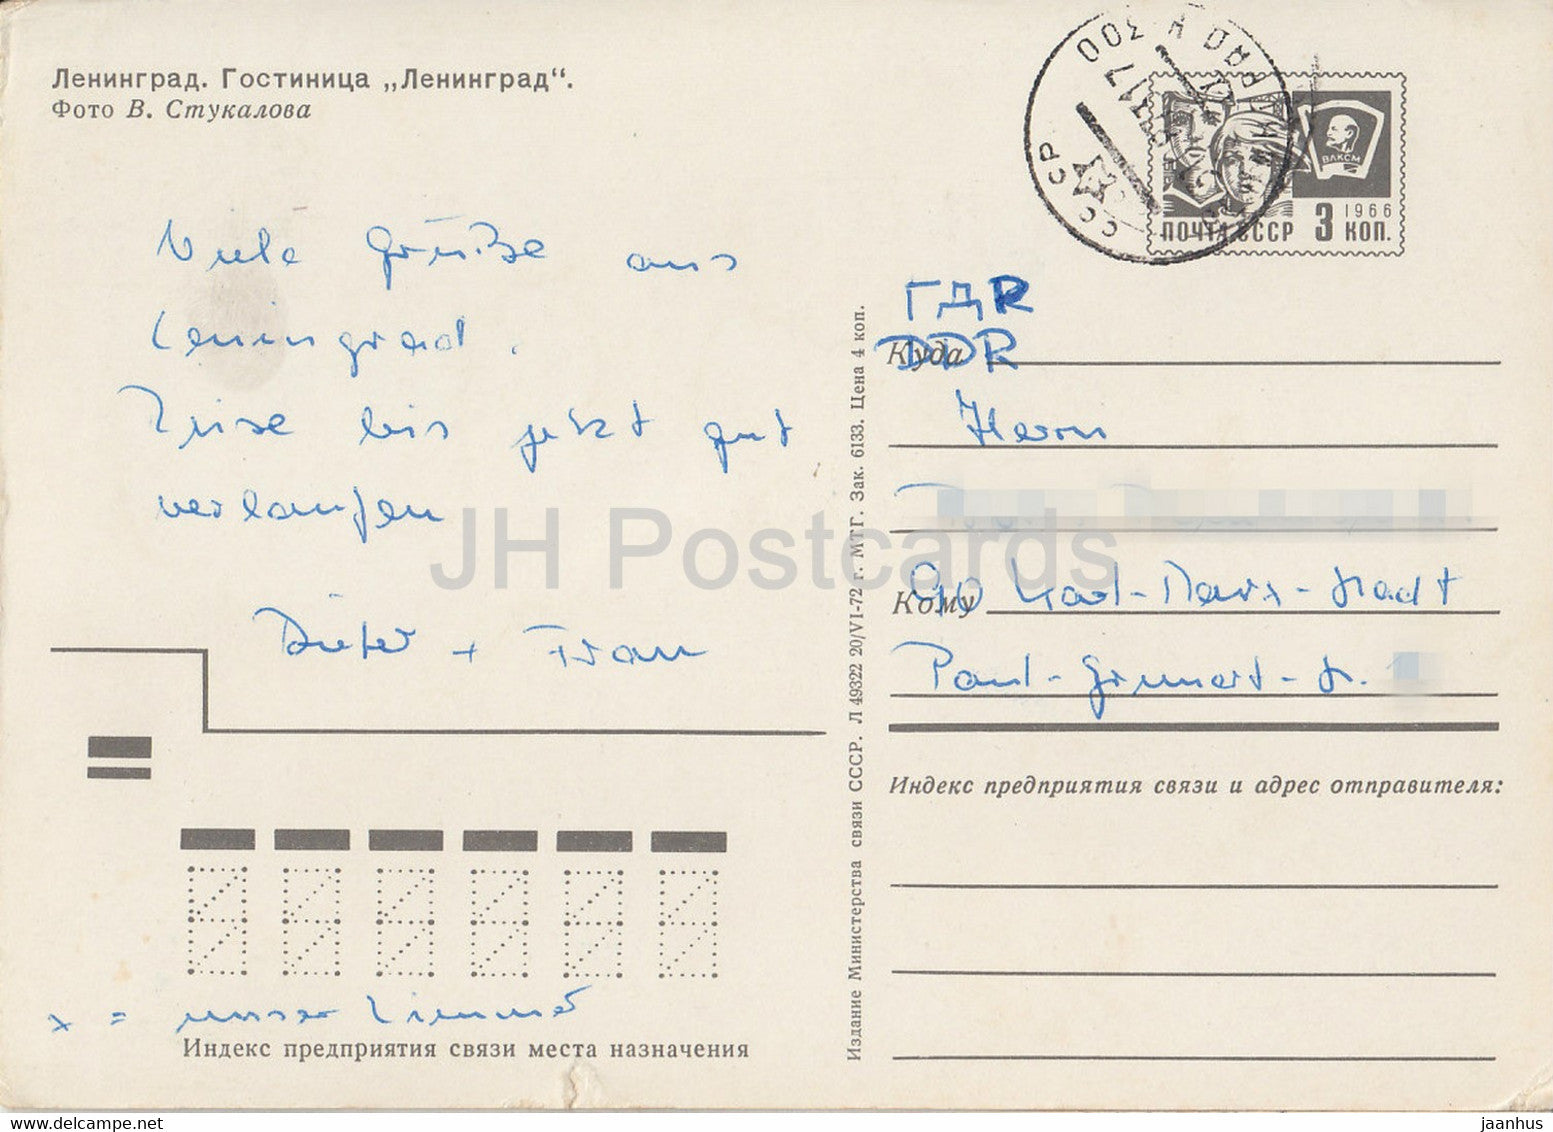 Ленинград. Гостиница „Ленинград“.
Фото В. Стукалова
Viele Grüße aus
Leningrad.
Reise bis jetzt gut
verlaufen
Dieter + Frau
x = unser Zimmer
Индекс предприятия связи места назначения
Издание Министерства связи СССР. Л 49322 20/VI-72 г. МТГ. Зак. 6133. Цена 4 коп.
СССР
ВЛКСМ
1966
ПОЧТА СССР 3 КОП.
ГДR
DDR
Куда
Herrn
Кому
90 Karl-Marx-Stadt
Paul-Grunert-Str.
Индекс предприятия связи и адрес отправителя:
JH Postcards
jaanhus
delcampe.net